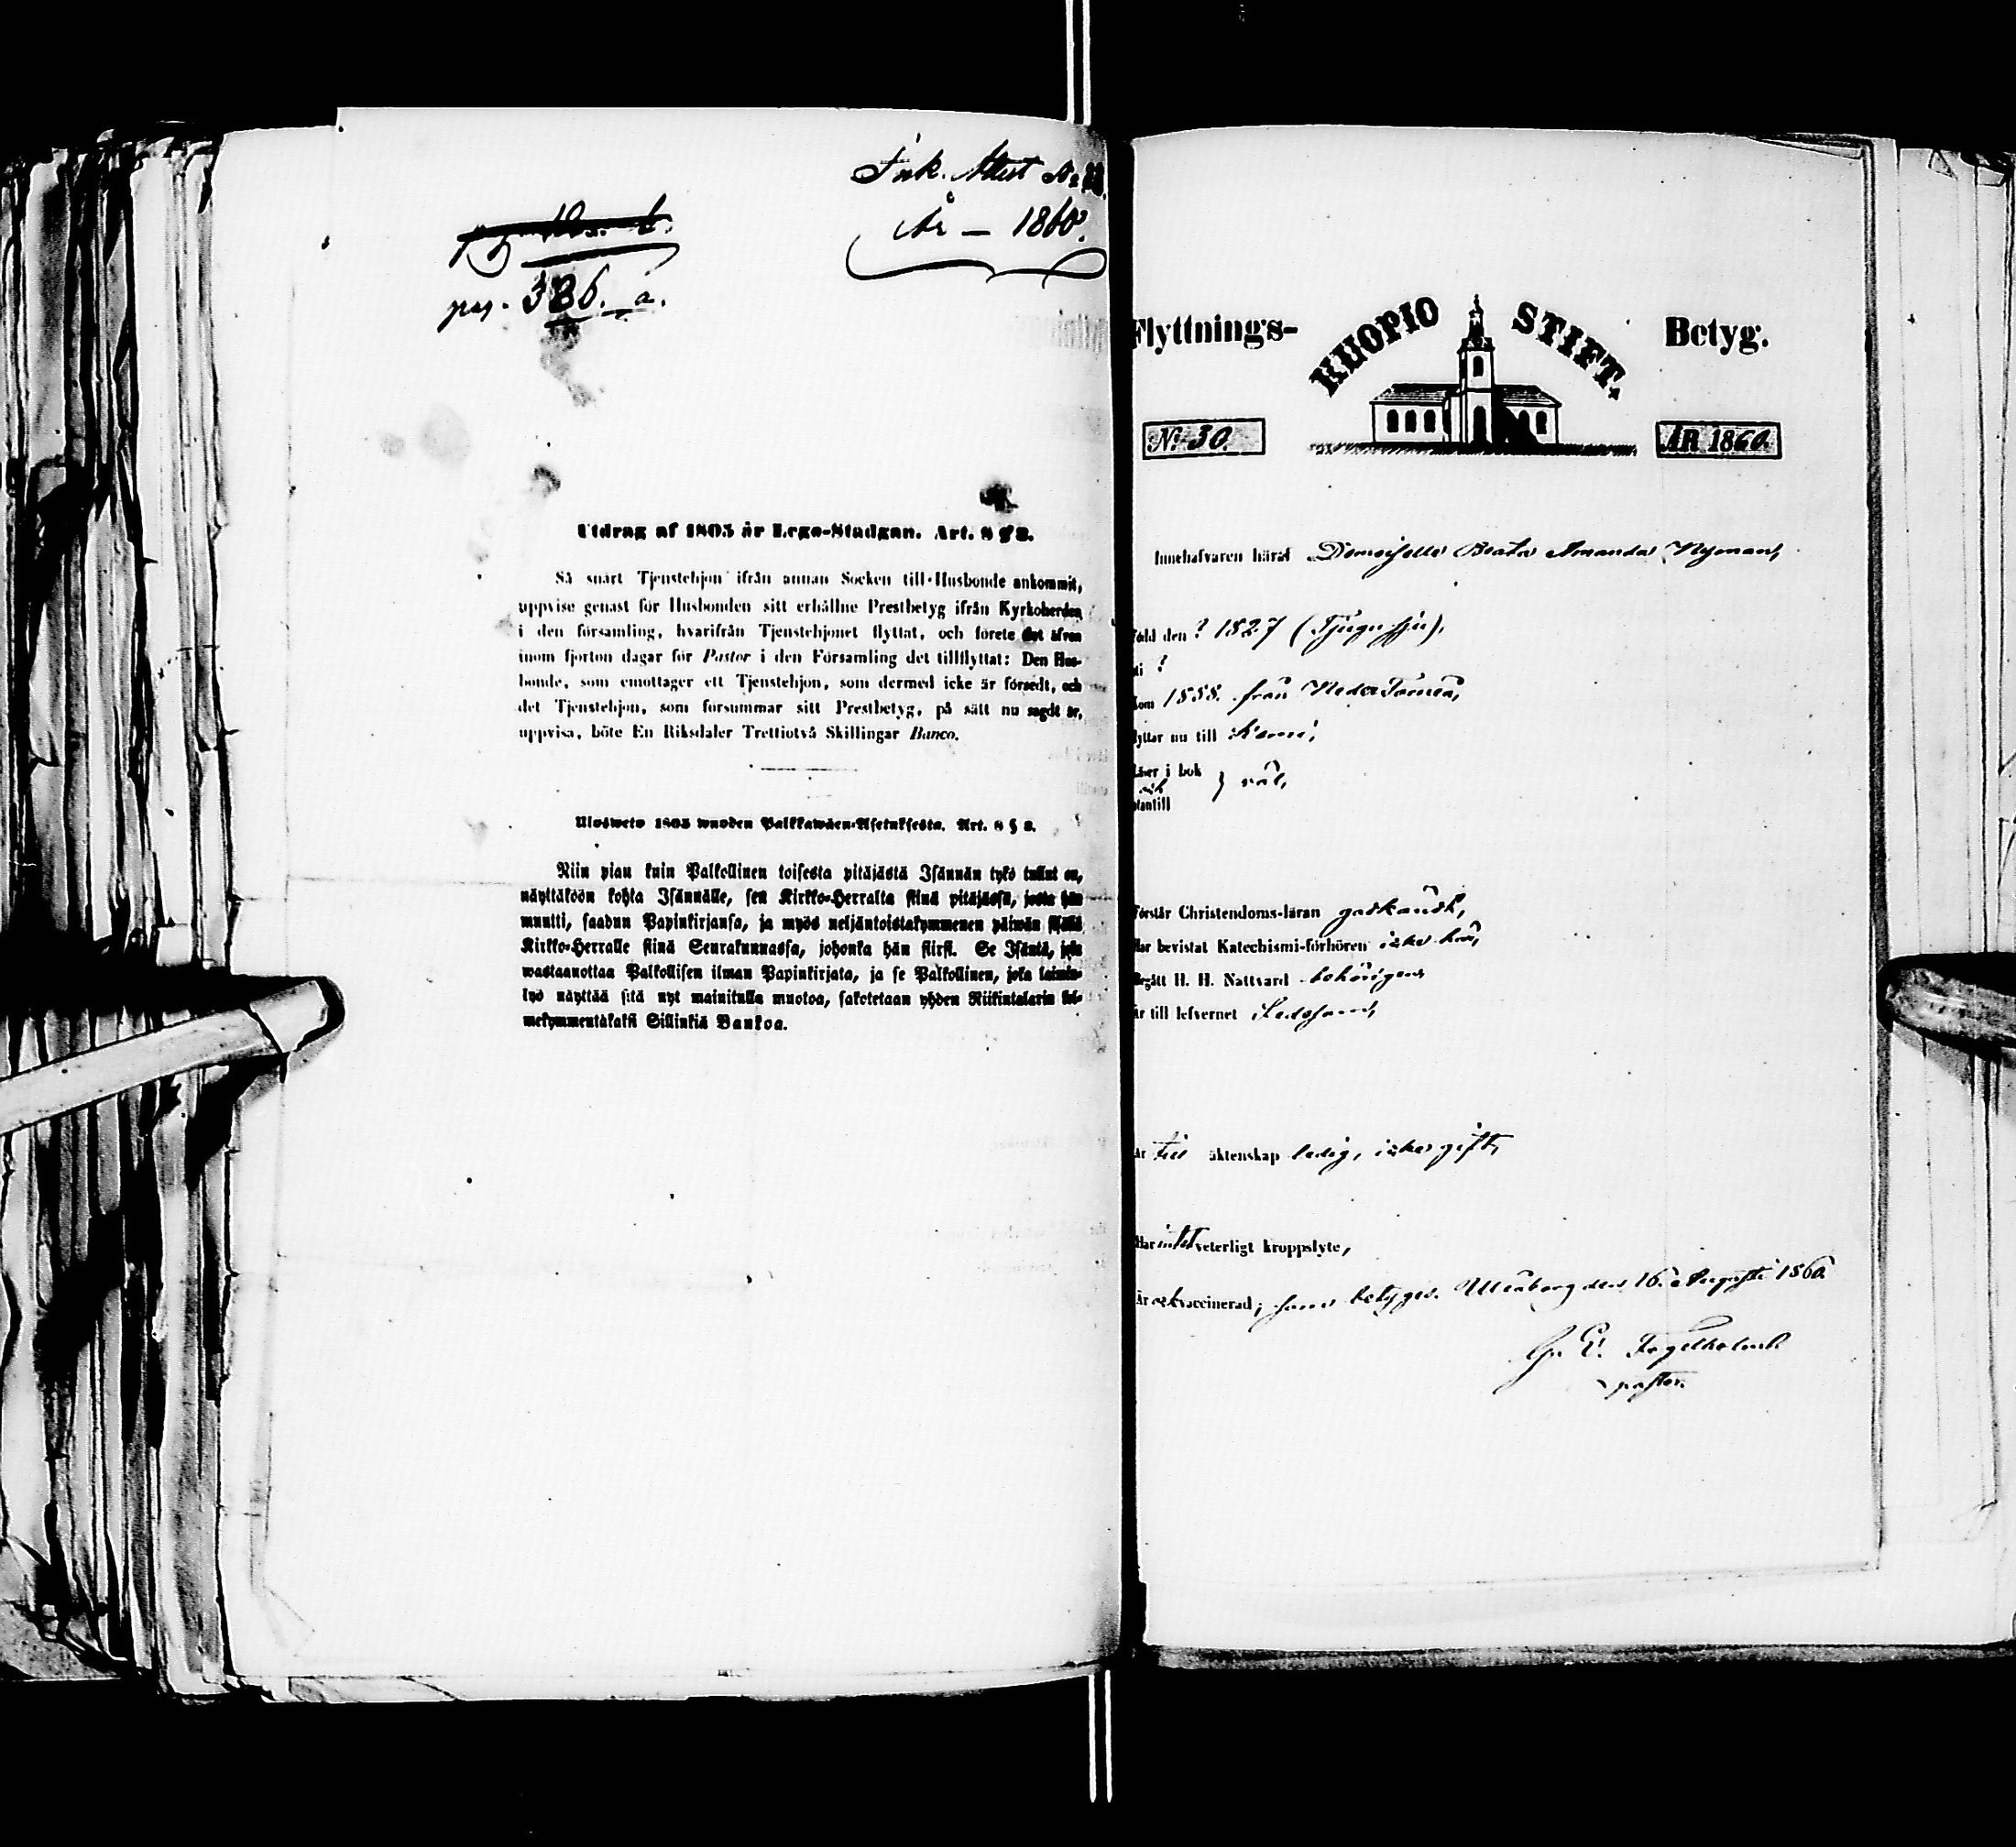 Ink. Attest No
År – 1860.
pag. 326. a.
Utdrag af 1805 år Lego-Stadgan. Art. 8 § 2.
Så snart Tjenstehjon ifrån annan Socken till Husbonde ankommit,
uppvise genast för Husbonden sitt erhållne Prestbetyg ifrån Kyrkoherden
i den församling, hvarifrån Tjenstehjonet flyttat, och förete det äfven
inom fjorton dagar för Pastor i den Församling det tillflyttat: Den Hus-
bonde, som emottager ett Tjenstehjon, som dermed icke är försedt, och
det Tjenstehjon, som försummar sitt Prestbetyg, på sätt nu sagdt är,
uppvisa, böte En Riksdaler Trettiotvå Skillingar Banco.
Ulosweto 1805 wuoden Palkkawäen-Asetuksesta. Art. 8 § 2.
Niin pian kuin Palkollinen toisesta pitäjästä Isännän tykö tullut on,
näyttäköön kohta Isännälle, sen Kirkko-Herralta siinä pitäjässä, josta hän
muutti, saadun Papinkirjansa, ja myös neljäntoistakymmenen päiwän sisällä
Kirkko-Herralle siinä Seurakunnassa, johonka hän siirsi. Se Isäntä, joka
wastaanottaa Palkollisen ilman Papinkirjata, ja se Palkollinen, joka laimin-
lyö näyttää sitä nyt mainitulla muotoa, sakotetaan yhden Riikintalarin kol-
mekymmentäkaksi Sillinkiä Bankoa.
Flyttnings- KUOPIO STIFT. Betyg.
No 30. ÅR 1860.
Innehafvaren häraf Demoiselle Beata Amanda Nyman,
född den ? 1827 (Tjugusju),
i ?
kom 1858. från Neder Torneå,
flyttar nu till Kemi,
Läser i bok
och } väl,
utantill
Förstår Christendoms-läran godkändt,
Har bevistat Katechismi-förhören icke här,
Begått H. H. Nattvard behörigen
Är till lefvernet Sedesam,
Är till äktenskap ledig, icke gift,
Har intet veterligt kroppslyte,
Är ock vaccinerad; som betyges. Uleåborg den 16. Augusti 1860.
E. Fogelholm
pastor.